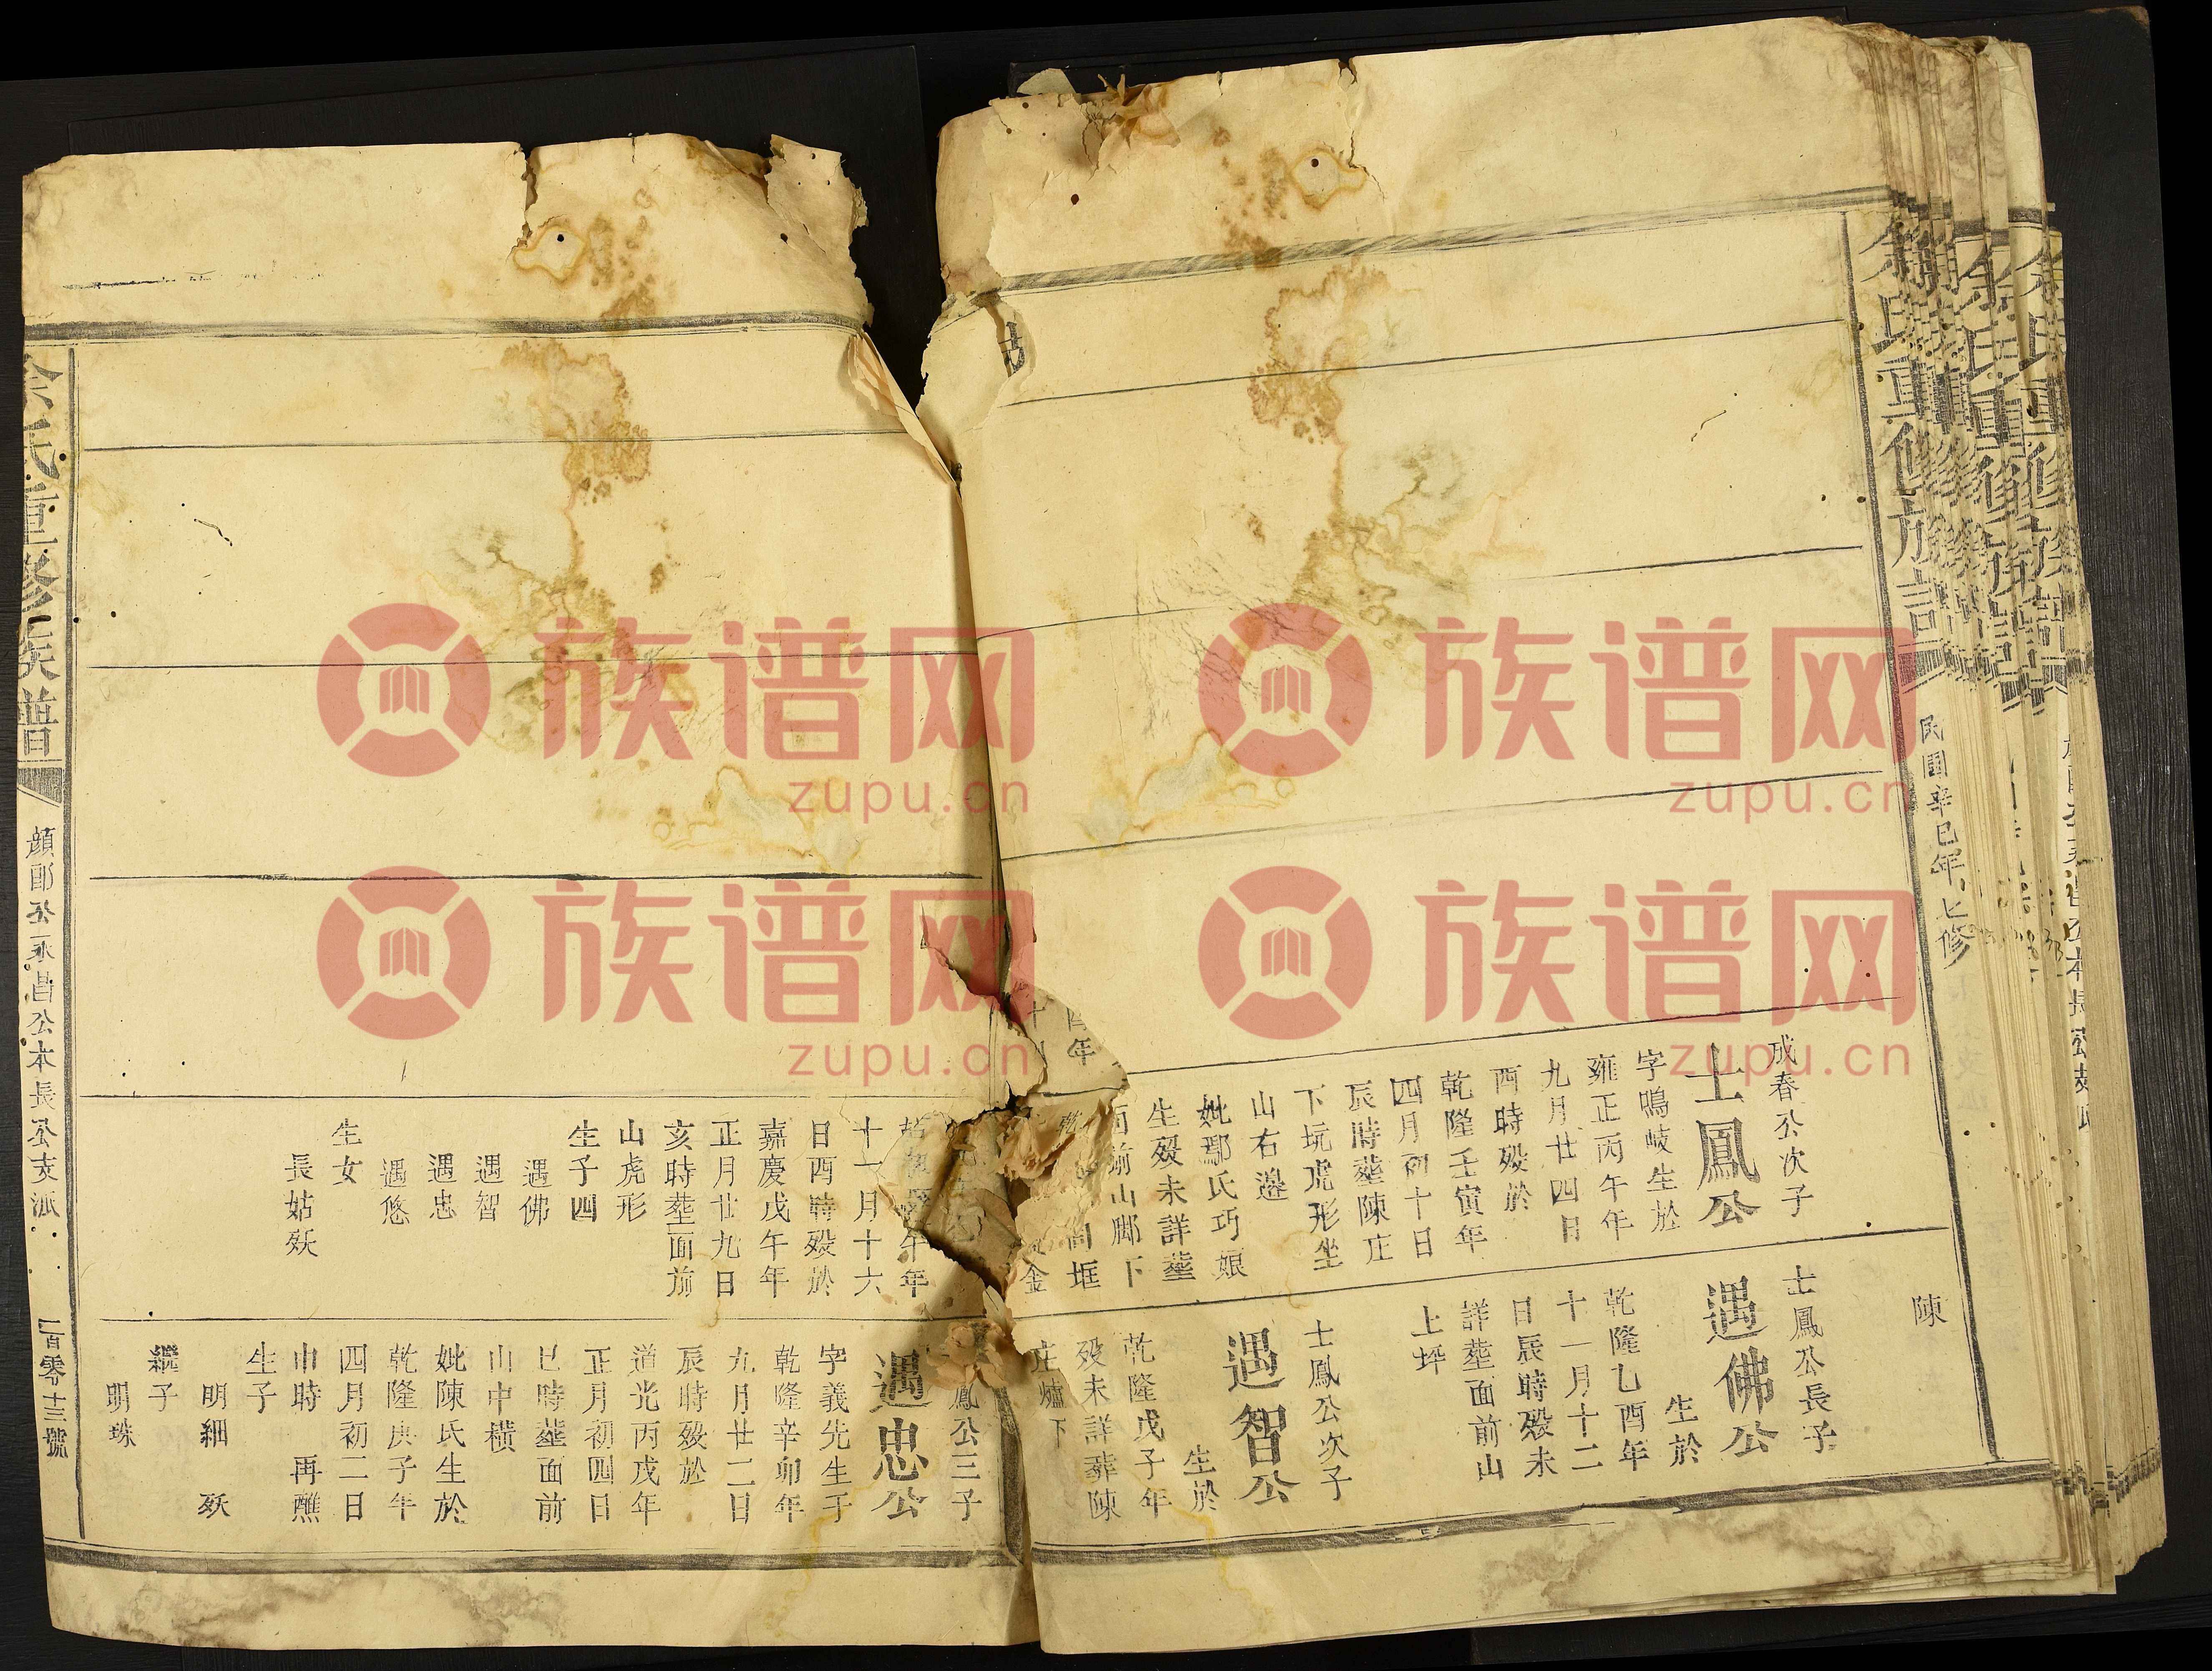 余氏重修族譜
民國辛巳年七修
陳
成春公次子
士鳳公
字鳴岐生於
雍正丙午年
九月廿四日
酉時歿於
乾隆壬寅年
四月初十日
辰時塟陳庄
下坑虎形坐
山右邉
妣鄢氏巧娘
生歿未詳塟
面前山脚下
酉年
士鳳公長子
遇佛公
生於
乾隆乙酉年
十一月十二
日辰時歿未
詳塟面前山
上坪
士鳳公次子
遇智公
生於
乾隆戊子年
歿未詳葬陳
庄爐下
午年
十一月十六
日酉時歿於
嘉慶戊午年
正月廿九日
亥時塟面前
山虎形
生子四
遇佛
遇智
遇忠
遇悠
生女
長姑殀
鳳公三子
遇忠公
字義先生于
乾隆辛卯年
九月廿二日
辰時歿於
道光丙戌年
正月初四日
巳時塟面前
山中橫
妣陳氏生於
乾隆庚子年
四月初二日
申時 再醮
生子
明細 殀
繼子
明珠
余氏重修族譜
顏郎公永昌公本長公支派
一百零十三號
族谱网
zupu.cn
族谱网
zupu.cn
族谱网
zupu.cn
族谱网
zupu.cn